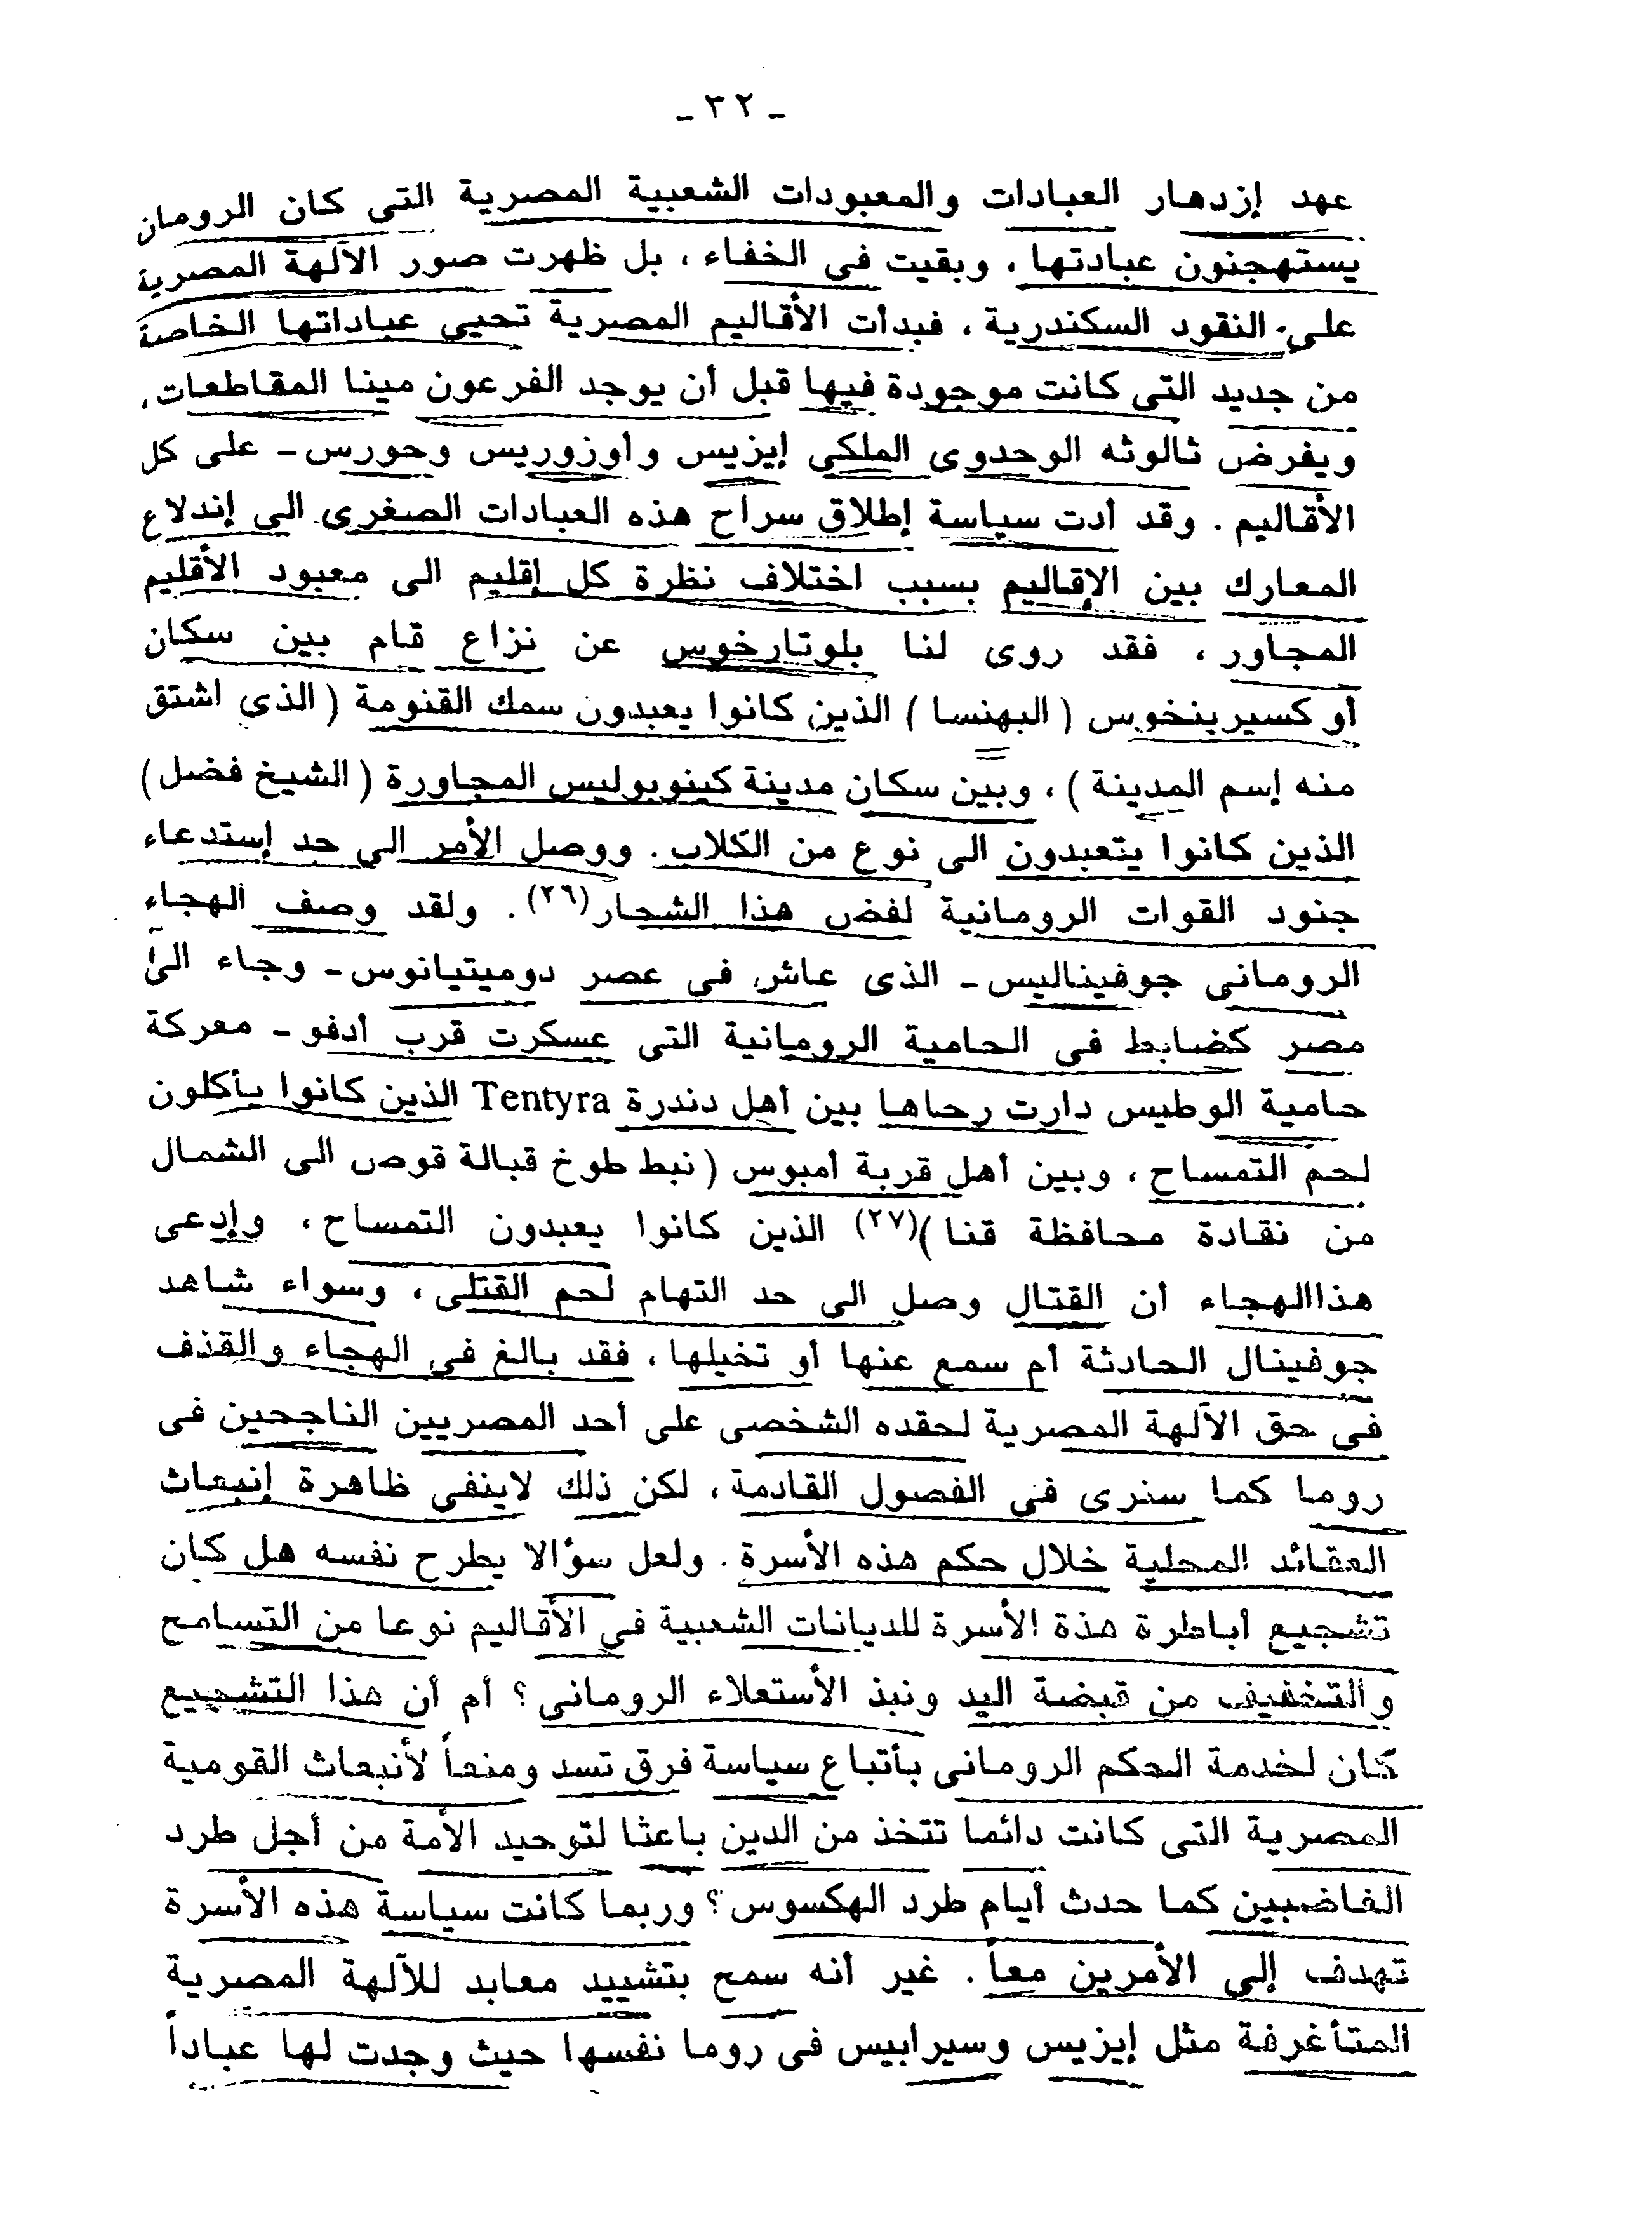 ـ ٣٢ ـ
عهد إزدهار العبادات والمعبودات الشعبية المصرية التى كان الرومان
يستهجنون عبادتها ، وبقيت فى الخفاء ، بل ظهرت صور الآلهة المصرية
على النقود السكندرية ، فبدأت الأقاليم المصرية تحيى عباداتها الخاصة
من جديد التى كانت موجودة فيها قبل أن يوجد الفرعون مينا المقاطعات ،
ويفرض ثالوثه الوحدوى الملكى إيزيس وأوزوريس وحورس ـ على كل
الأقاليم . وقد أدت سياسة إطلاق سراح هذه العبادات الصغرى الى إندلاع
المعارك بين الإقاليم بسبب اختلاف نظرة كل إقليم الى معبود الأقليم
المجاور ، فقد روى لنا بلوتارخوس عن نزاع قام بين سكان
أو كسيرينخوس ( البهنسا ) الذين كانوا يعبدون سمك القنومة ( الذى اشتق
منه إسم المدينة ) ، وبين سكان مدينة كينوبوليس المجاورة ( الشيخ فضل )
الذين كانوا يتعبدون الى نوع من الكلاب . ووصل الأمر الى حد إستدعاء
جنود القوات الرومانية لفض هذا الشجار (٢٦) . ولقد وصف الهجاء
الرومانى جوفيناليس ـ الذى عاش فى عصر دوميتيانوس ـ وجاء الى
مصر كضابط فى الحامية الرومانية التى عسكرت قرب أدفو ـ معركة
حامية الوطيس دارت رحاها بين أهل دندرة Tentyra الذين كانوا يأكلون
لحم التمساح ، وبين أهل قرية أمبوس ( نبط طوخ قبالة قوص الى الشمال
من نقادة محافظة قنا )(٢٧) الذين كانوا يعبدون التمساح ، وإدعى
هذاالهجاء أن القتال وصل الى حد التهام لحم القتلى ، وسواء شاهد
جوفينال الحادثة أم سمع عنها أو تخيلها ، فقد بالغ فى الهجاء والقذف
فى حق الآلهة المصرية لحقده الشخصى على أحد المصريين الناجحين فى
روما كما سنرى فى الفصول القادمة ، لكن ذلك لاينفى ظاهرة إنبعاث
العقائد المحلية خلال حكم هذه الأسرة . ولعل سؤالا يطرح نفسه هل كان
تشجيع أباطرة هذة الأسرة للديانات الشعبية في الأقاليم نوعا من التسامح
والتخفيف من قبضة اليد ونبذ الأستعلاء الرومانى ؟ أم أن هذا التشجيع
كان لخدمة الحكم الرومانى بأتباع سياسة فرق تسد ومنعاً لأنبعاث القومية
المصرية التى كانت دائما تتخذ من الدين باعثا لتوحيد الأمة من أجل طرد
الغاضبين كما حدث أيام طرد الهكسوس ؟ وربما كانت سياسة هذه الأسرة
تهدف إلى الأمرين معاً . غير أنه سمح بتشييد معابد للآلهة المصرية
المتأغرفة مثل إيزيس وسيرابيس فى روما نفسها حيث وجدت لها عباداً